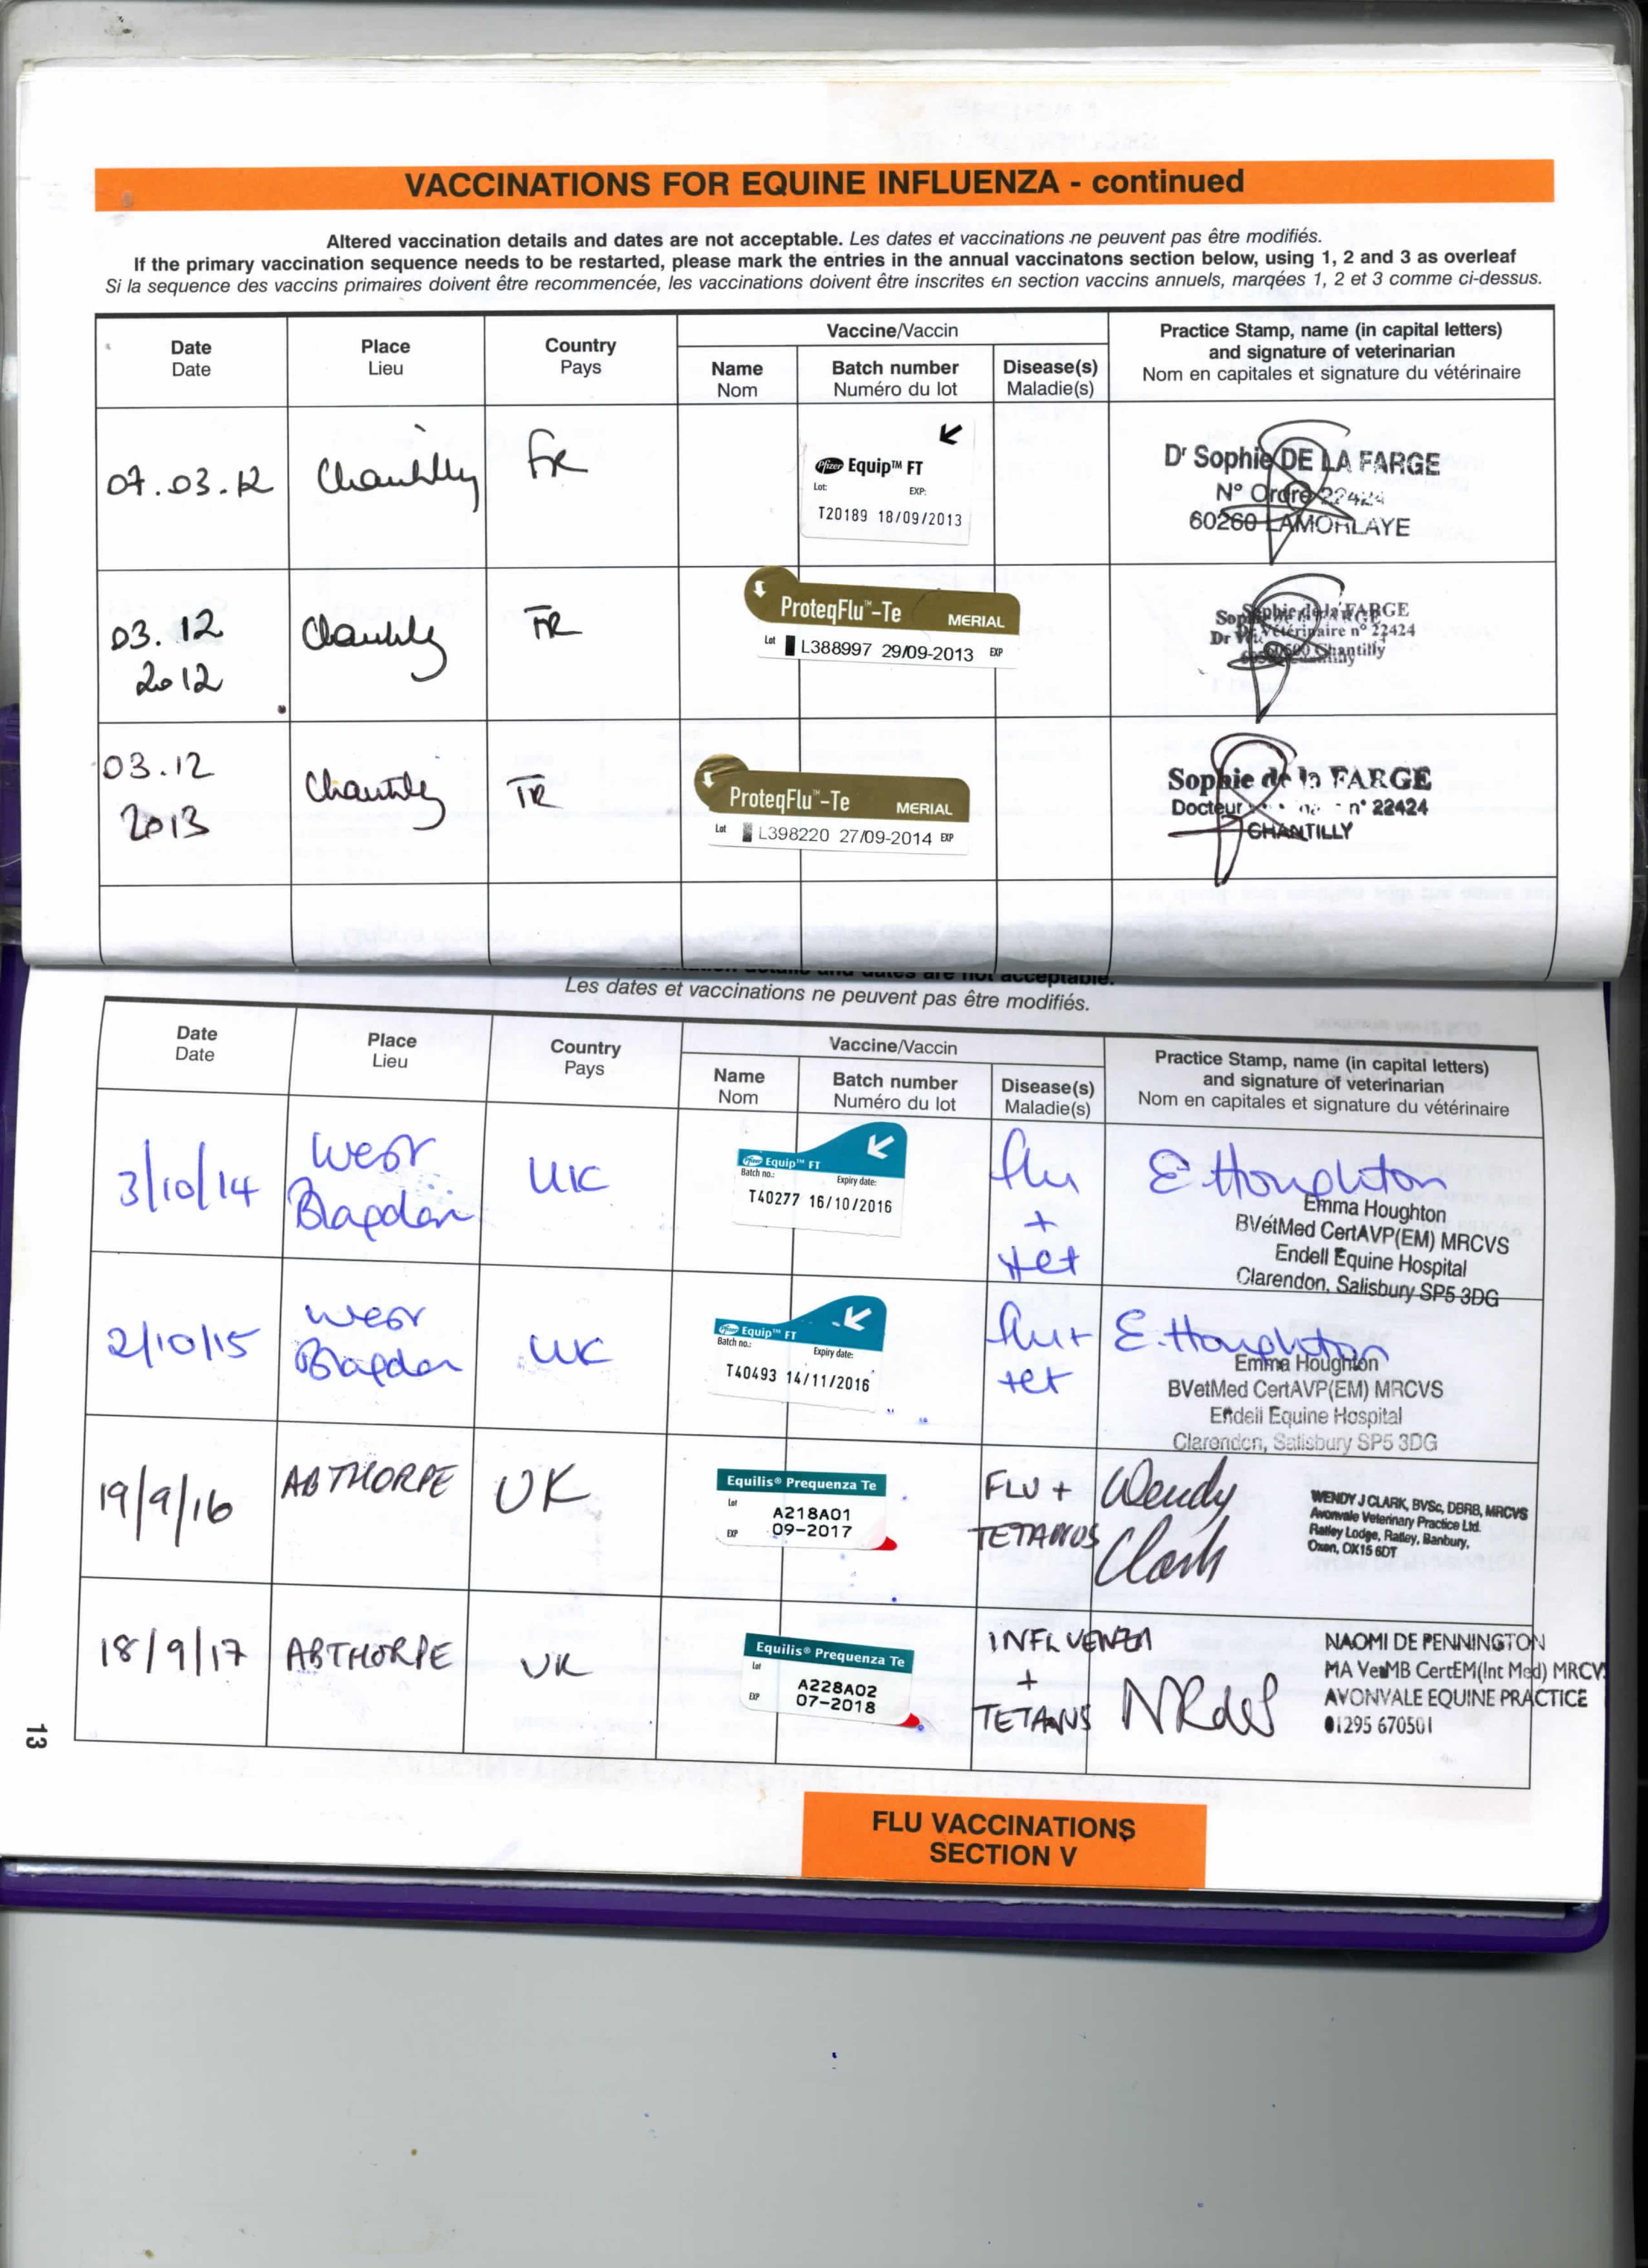 VACCINATIONS FOR EQUINE INFLUENZA - continued
Altered vaccination details and dates are not acceptable. Les dates et vaccinations ne peuvent pas être modifiés.
If the primary vaccination sequence needs to be restarted, please mark the entries in the annual vaccinatons section below, using 1, 2 and 3 as overleaf
Si la sequence des vaccins primaires doivent être recommencée, les vaccinations doivent être inscrites en section vaccins annuels, marqées 1, 2 et 3 comme ci-dessus.
Date
Date
Place
Lieu
Country
Pays
Vaccine/Vaccin
Name
Nom
Batch number
Numéro du lot
Disease(s)
Maladie(s)
Practice Stamp, name (in capital letters)
and signature of veterinarian
Nom en capitales et signature du vétérinaire
07.03.12
Chantilly
FR
Pfizer Equip™ FT
Lot: EXP:
T20189 18/09/2013
Dr Sophie DE LA FARGE
N° Ordre 22424
60260 LAMORLAYE
03.12
2012
Chantilly
FR
ProteqFlu™-Te MERIAL
Lot L388997 29/09-2013 EXP
Sophie de la FARGE
Dr Vétérinaire n° 22424
60500 Chantilly
03.12
2013
Chantilly
FR
ProteqFlu™-Te MERIAL
Lot L398220 27/09-2014 EXP
Sophie de la FARGE
Docteur n° 22424
CHANTILLY
and dates are not acceptable.
Les dates et vaccinations ne peuvent pas être modifiés.
Date
Date
Place
Lieu
Country
Pays
Vaccine/Vaccin
Name
Nom
Batch number
Numéro du lot
Disease(s)
Maladie(s)
Practice Stamp, name (in capital letters)
and signature of veterinarian
Nom en capitales et signature du vétérinaire
3/10/14
West
Blagdon
UK
Pfizer Equip™ FT
Batch no.: Expiry date:
T40277 16/10/2016
flu
+
tet
E Houghton
Emma Houghton
BVetMed CertAVP(EM) MRCVS
Endell Equine Hospital
Clarendon, Salisbury SP5 3DG
2/10/15
West
Blagdon
UK
Pfizer Equip™ FT
Batch no.: Expiry date:
T40493 14/11/2016
flu +
tet
E. Houghton
Emma Houghton
BVetMed CertAVP(EM) MRCVS
Endell Equine Hospital
Clarendon, Salisbury SP5 3DG
19/9/16
ABTHORPE
UK
Equilis® Prequenza Te
Lot A218A01
EXP 09-2017
FLU +
TETANUS
Wendy
Clark
WENDY J CLARK, BVSc, DBRB, MRCVS
Avonvale Veterinary Practice Ltd.
Ratley Lodge, Ratley, Banbury,
Oxon, OX15 6DT
18/9/17
ABTHORPE
UK
Equilis® Prequenza Te
Lot A228A02
EXP 07-2018
INFLUENZA
+
TETANUS
NAOMI DE PENNINGTON
MA VetMB CertEM(Int Med) MRCVS
AVONVALE EQUINE PRACTICE
01295 670501
13
FLU VACCINATIONS
SECTION V